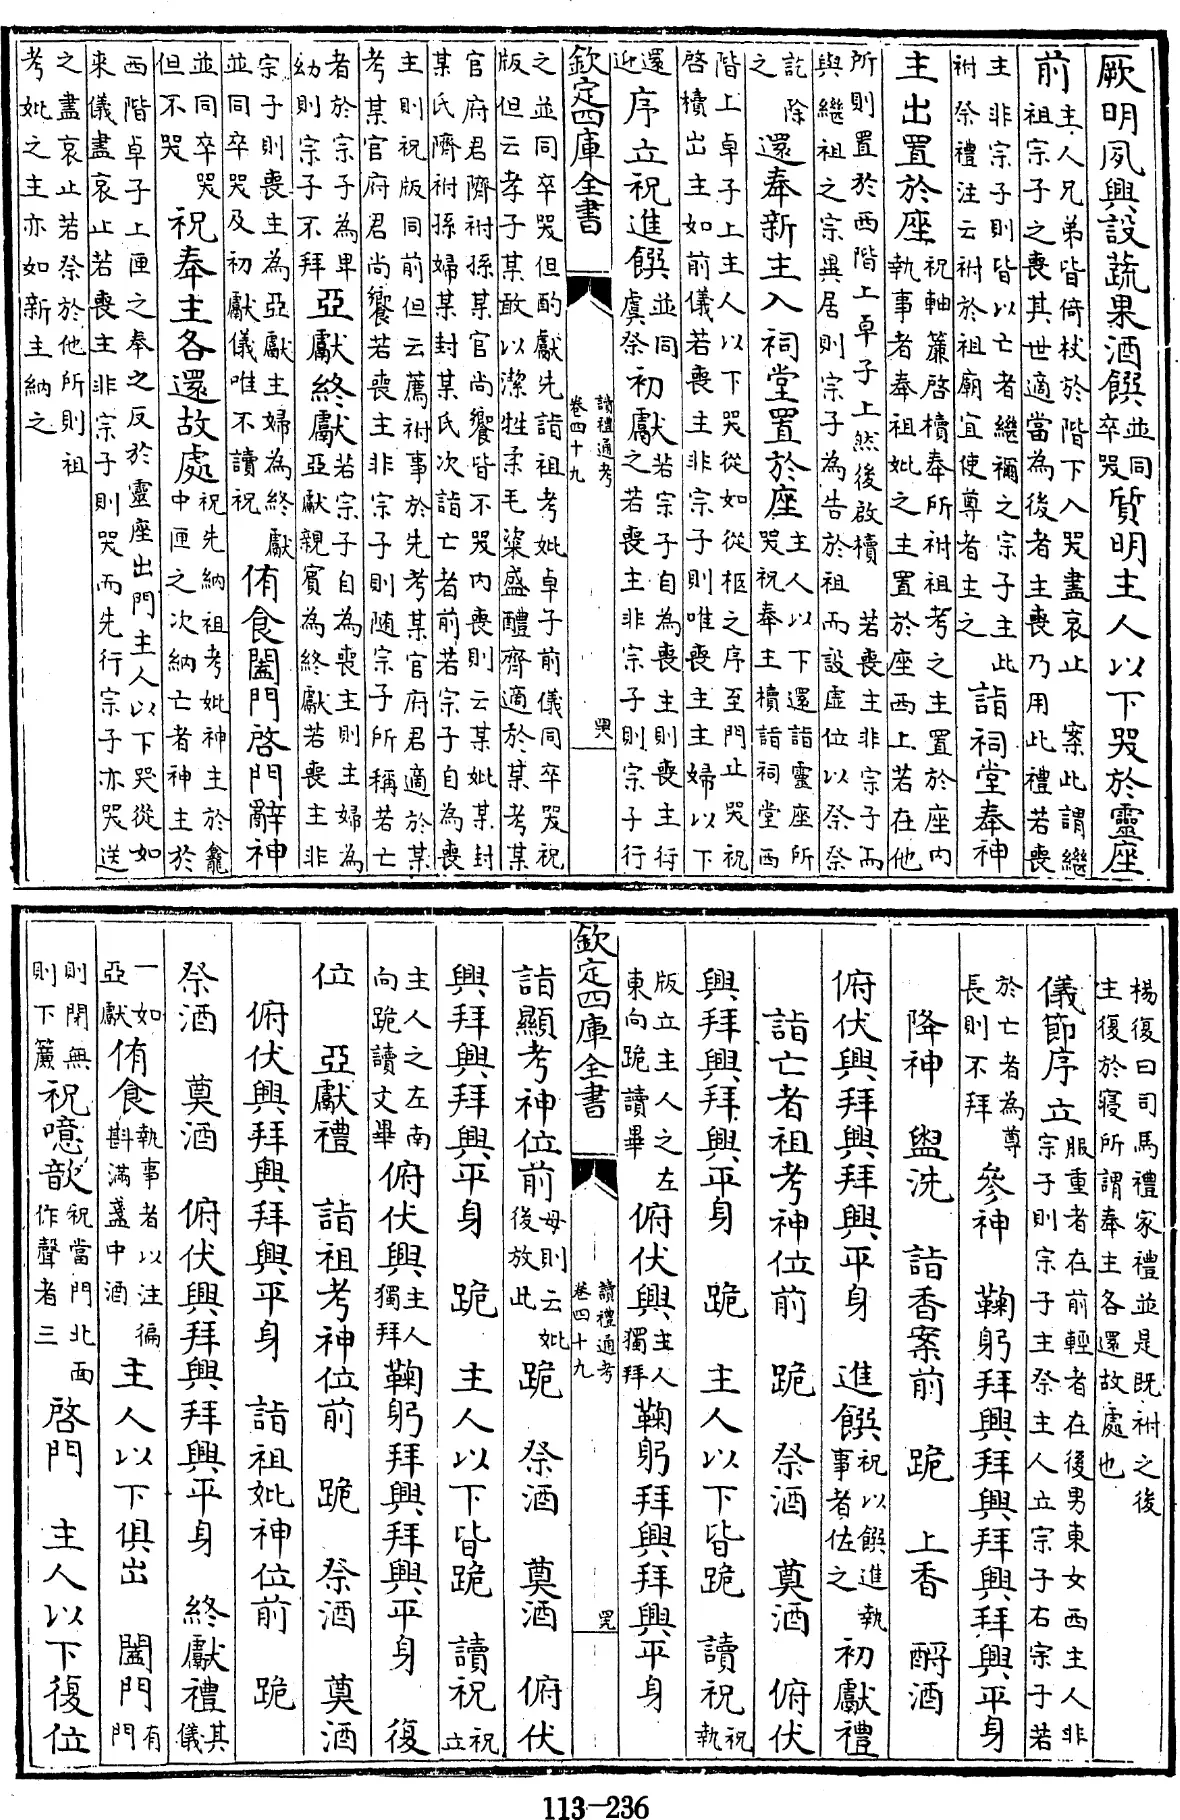 厥明夙興設蔬果酒饌並同卒哭質明主人以下哭於靈座
前主人兄弟皆倚杖於階下入哭盡哀止　案此謂繼祖宗子之喪其世適當為後者主喪乃用此禮若喪
主非宗子則皆以亡者繼禰之宗子主此祔祭禮注云祔於祖廟宜使尊者主之詣祠堂奉神
主出置於座祝軸簾啓櫝奉所祔祖考之主置於座内執事者奉祖妣之主置於座西上若在他
所則置於西階上卓子上然後啟櫝　若喪主非宗子而與繼祖之宗異居則宗子為告於祖而設虛位以祭祭
訖除之還奉新主入祠堂置於座主人以下還詣靈座所哭祝奉主櫝詣祠堂西
階上卓子上主人以下哭從如從柩之序至門止哭祝啓櫝出主如前儀若喪主非宗子則唯喪主主婦以下
還近序立祝進饌並同虞祭初獻若宗子自為喪主則喪主行之若喪主非宗子則宗子行
欽定四庫全書　讀禮通考卷四十九
之並同卒哭但酌獻先詣祖考妣卓子前儀同卒哭祝版但云孝子某敢以潔牲柔毛粢盛醴齊適於某考某
官府君隮祔孫某官尚饗皆不哭内喪則云某妣某封某氏隮祔孫婦某封某氏次詣亡者前若宗子自為喪
主則祝版同前但云薦祔事於先考某官府君適於某考某官府君尚饗若喪主非宗子則隨宗子所稱若亡
者於宗子為卑幼則宗子不拜亞獻終獻若宗子自為喪主則主婦為亞獻親賓為終獻若喪主非
宗子則喪主為亞獻主婦為終獻並同卒哭及初獻儀唯不讀祝侑食闔門啓門辭神
並同卒哭但不哭祝奉主各還故處祝先納祖考妣神主於龕中匣之次納亡者神主於
西階卓子上匣之奉之反於靈座出門主人以下哭從如來儀盡哀止若喪主非宗子則哭而先行宗子亦哭送
之盡哀止若祭於他所則祖考妣之主亦如新主納之
楊復曰司馬禮家禮並是既祔之後主復於寢所謂奉主各還故處也
儀節序立服重者在前輕者在後男東女西主人非宗子則宗子主祭主人立宗子右宗子若
於亡者為尊長則不拜參神　鞠躬拜興拜興拜興拜興平身
降神　盥洗　詣香案前　跪　上香　酹酒
俯伏興拜興拜興平身　進饌祝以饌進執事者佐之初獻禮
詣亡者祖考神位前　跪　祭酒　奠酒　俯伏
興拜興拜興平身　跪　主人以下皆跪　讀祝祝執
版立主人之左東向跪讀畢俯伏興主人獨拜鞠躬拜興拜興平身
欽定四庫全書　讀禮通考卷四十九
詣顯考神位前母則云妣後放此跪　祭酒　奠酒　俯伏
興拜興拜興平身　跪　主人以下皆跪　讀祝祝立
主人之左南向跪讀文畢俯伏興主人獨拜鞠躬拜興拜興平身　復
位　亞獻禮　詣祖考神位前　跪　祭酒　奠酒
俯伏興拜興拜興平身　詣祖妣神位前　跪
祭酒　奠酒　俯伏興拜興拜興平身　終獻禮其儀
一如亞獻侑食執事者以注徧斟滿盞中酒主人以下俱出　闔門有門
則閉無則下簾祝噫歆祝當門北面作聲者三啓門　主人以下復位
113—236